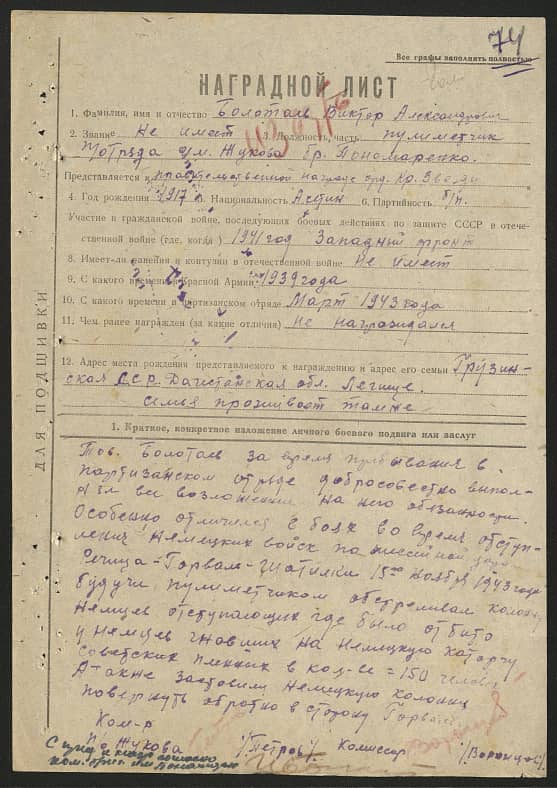 74
Все графы заполнять полностью
НАГРАДНОЙ ЛИСТ
1. Фамилия, имя и отчество Болотаев Виктор Александрович
2. Звание Не имеет 3. Должность, часть пулиметчик
отряда им. Жукова бр. Пономаренко.
Представляется к правительственной награде орд. Кр. Звезды
4. Год рождения 1917 г. 5. Национальность Асетин 6. Партийность б/п.
Участие в гражданской войне, последующих боевых действиях по защите СССР в отече-
ственной войне (где, когда) 1941 год Западный фронт
8. Имеет-ли ранения и контузии в отечественной войне не имеет
9. С какого времени в Красной Армии 1939 года
10. С какого времени в партизанском отряде Март 1943 года
11. Чем ранее награжден (за какие отличия) не награждался
12. Адрес места рождения представляемого к награждению и адрес его семьи Грузин-
ская ССР
семья проживает также
ДЛЯ ПОДШИВКИ
1. Краткое, конкретное изложение личного боевого подвига или заслуг
Тов. Болотаев за время пребывания в
партизанском отряде добросовестно выпол-
нял все возложенные на него обязанности.
Особенно отличился в боях во время отступ-
ления немецких войск по шоссейной
Речица-Горваль-Шатилки 15го ноября 1943 года
будучи пулиметчиком обстреливал колонну
немцев отступающих где было отбито
у немцев гнавших на немецкую каторгу
советских пленник в кол-ве = 150 человек
А также заставили немецкую колонну
повернуть обратно в сторону Горваль
Ком-р
по Жукова /Петров/ Комиссар /Воронцов/